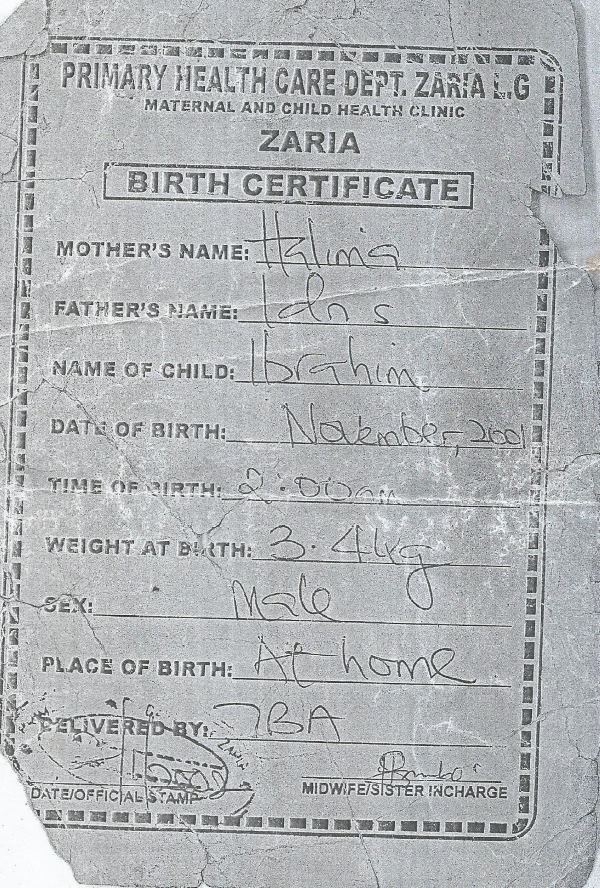 PRIMARY HEALTH CARE DEPT. ZARIA L.G
MATERNAL AND CHILD HEALTH CLINIC
ZARIA
BIRTH CERTIFICATE
MOTHER'S NAME: Halima
FATHER'S NAME: Idris
NAME OF CHILD: Ibrahim
DATE OF BIRTH: November, 2001
TIME OF BIRTH: 2:00am
WEIGHT AT BIRTH: 3.4kg
SEX: Male
PLACE OF BIRTH: At home
DELIVERED BY: TBA
DATE/OFFICIAL STAMP
MIDWIFE/SISTER INCHARGE